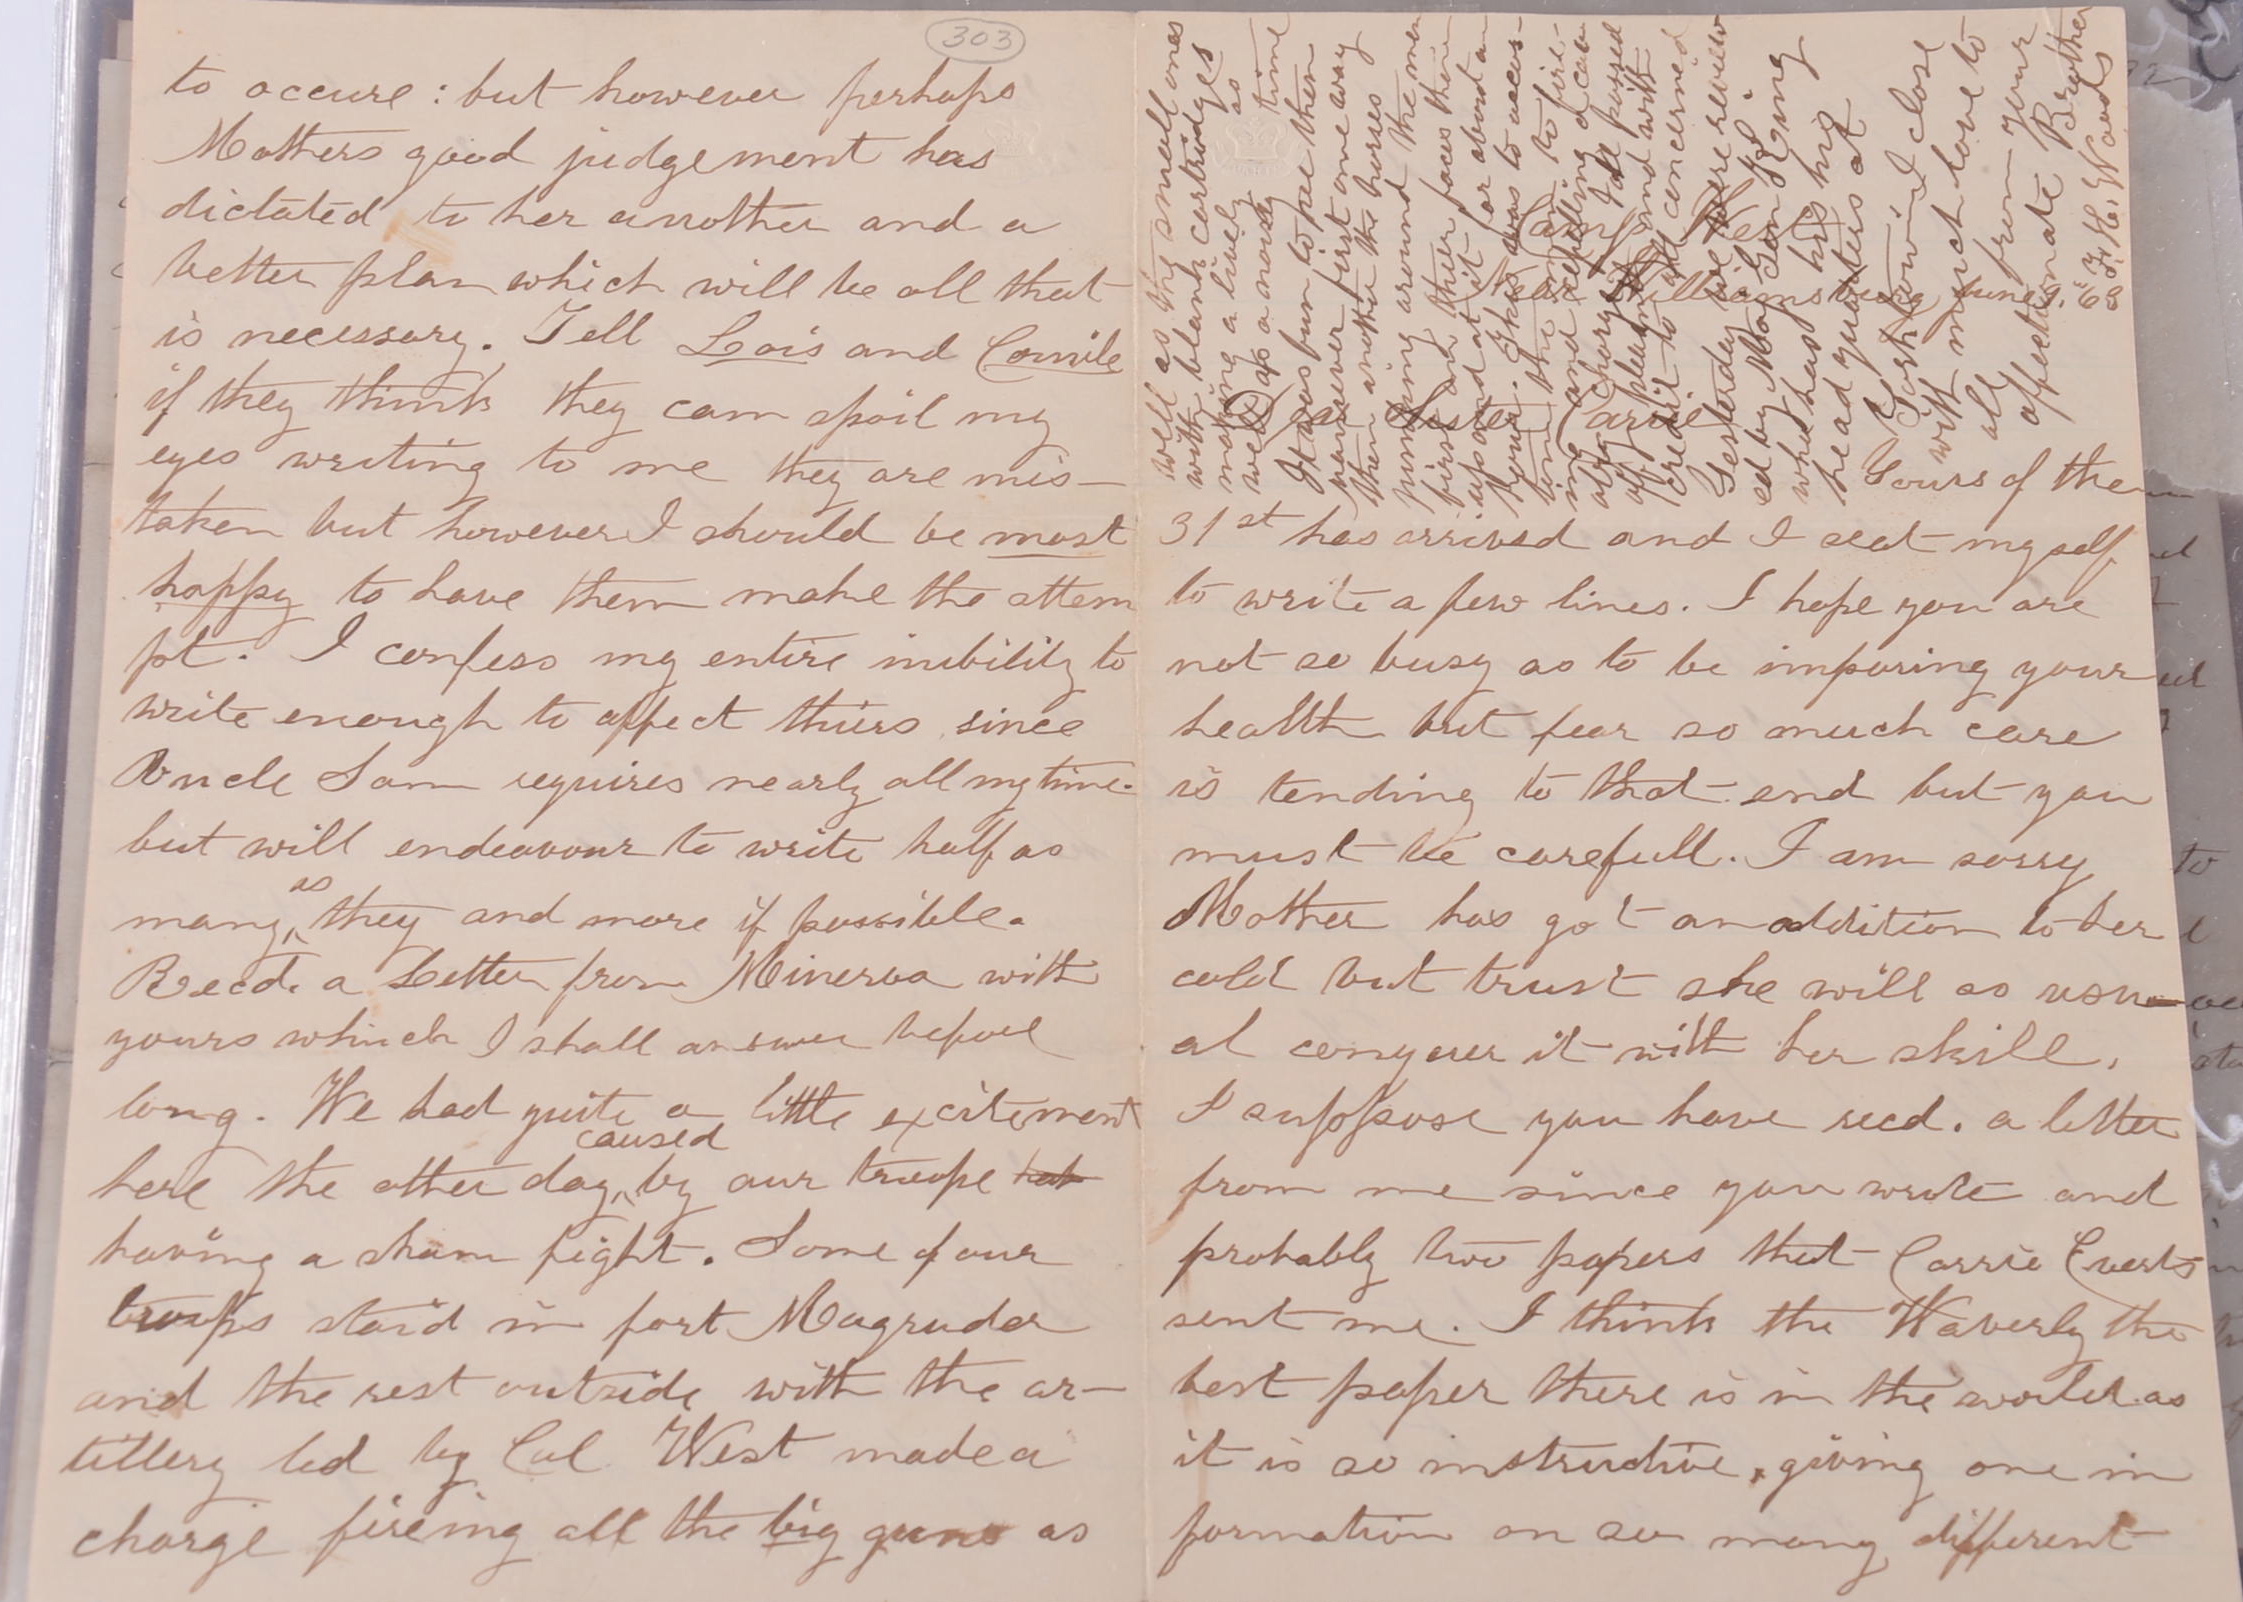 303
to occure : but however perhaps
Mothers good judgement has
dictated to her another and a
better plan which will be all that
is necessary. Tell Lois and Comile
if they think they can spoil my
eyes writing to me they are mis-
taken but however I should be most
happy to have them make the attem
pt. I confess my entire inibility to
write enough to affect thiers since
Uncle Sam requires nearly all my time.
but will endeavour to write half as
many as they and more if possible.
Recd. a Letter from Minerva with
yours which I shall answer before
long. We had quite a little excitement
here the other day caused by our troops
having a sham fight. Some of our
troops staid in fort Magruder
and the rest outside with the ar-
tillery led by Col West made a
charge fireing all the big guns as
Camp West
Near Williamsburg June
Dear Sister Carrie
Yours of the
31st has arrived and I seat myself
to write a few lines. I hope you are
not so busy as to be imparing your
health but fear so much care
is tending to that end but you
must be carefull. I am sorry
Mother has got an addition to her
cold but trust she will as usu-
al conquer it with her skill.
I suppose you have recd. a letter
from me since you wrote and
probably two papers that Carrie Everts
sent me. I think the Waverly the
best paper there is in the world as
it is so instructive, giving one in
formation on so many different
well as the small ones
with blank cartridges
making a lively so
well as a noisy time
It was fun to see them
manuver first one way
then another the horses
running around the men
first on thier faces then
up and at it for about an
hour. This was to accus-
tom the men to fire-
ing and repelling of cav
alry charges I all passed
off pleasant and with
credit to all concerned
Yesterday we were review
ed by Maj Gen King
who has his
head quarters at
Yorktown I close
with much love to
all from your
affectionate Brother
F. H. Woods